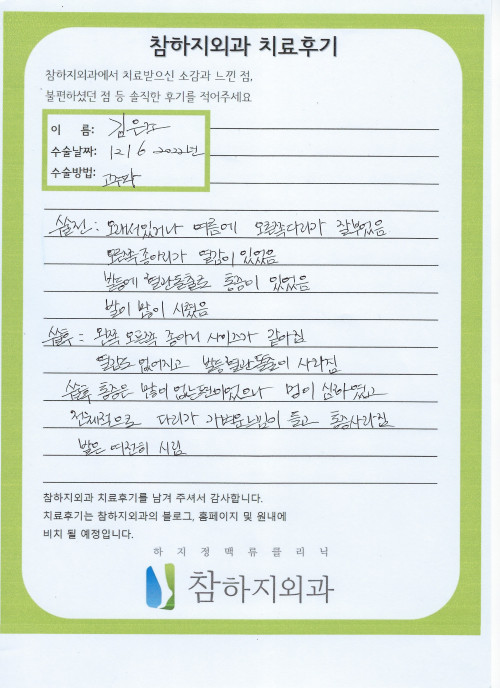 참하지외과 치료후기
참하지외과에서 치료받으신 소감과 느낀 점,
불편하셨던 점 등 솔직한 후기를 적어주세요
이 름: 김은
수술날짜: 12/6 2022년
수술방법: 고주파
수술전: 오래서있거나 여름에 오른쪽다리가 잘부었음
오른쪽종아리가 열감이 있었음
발등에 혈관돌출로 통증이 있었음
발이 많이 시렸음
수술후: 왼쪽 오른쪽 종아리 사이즈가 같아짐
열감도 없어지고 발등혈관돌출이 사라짐
수술후 통증은 많이 없는편이었으나 멍이 심하였고
전체적으로 다리가 가벼운느낌이 들고 통증사라짐
발은 여전히 시림
참하지외과 치료후기를 남겨 주셔서 감사합니다.
치료후기는 참하지외과의 블로그, 홈페이지 및 원내에
비치 될 예정입니다.
하지정맥류클리닉
참하지외과